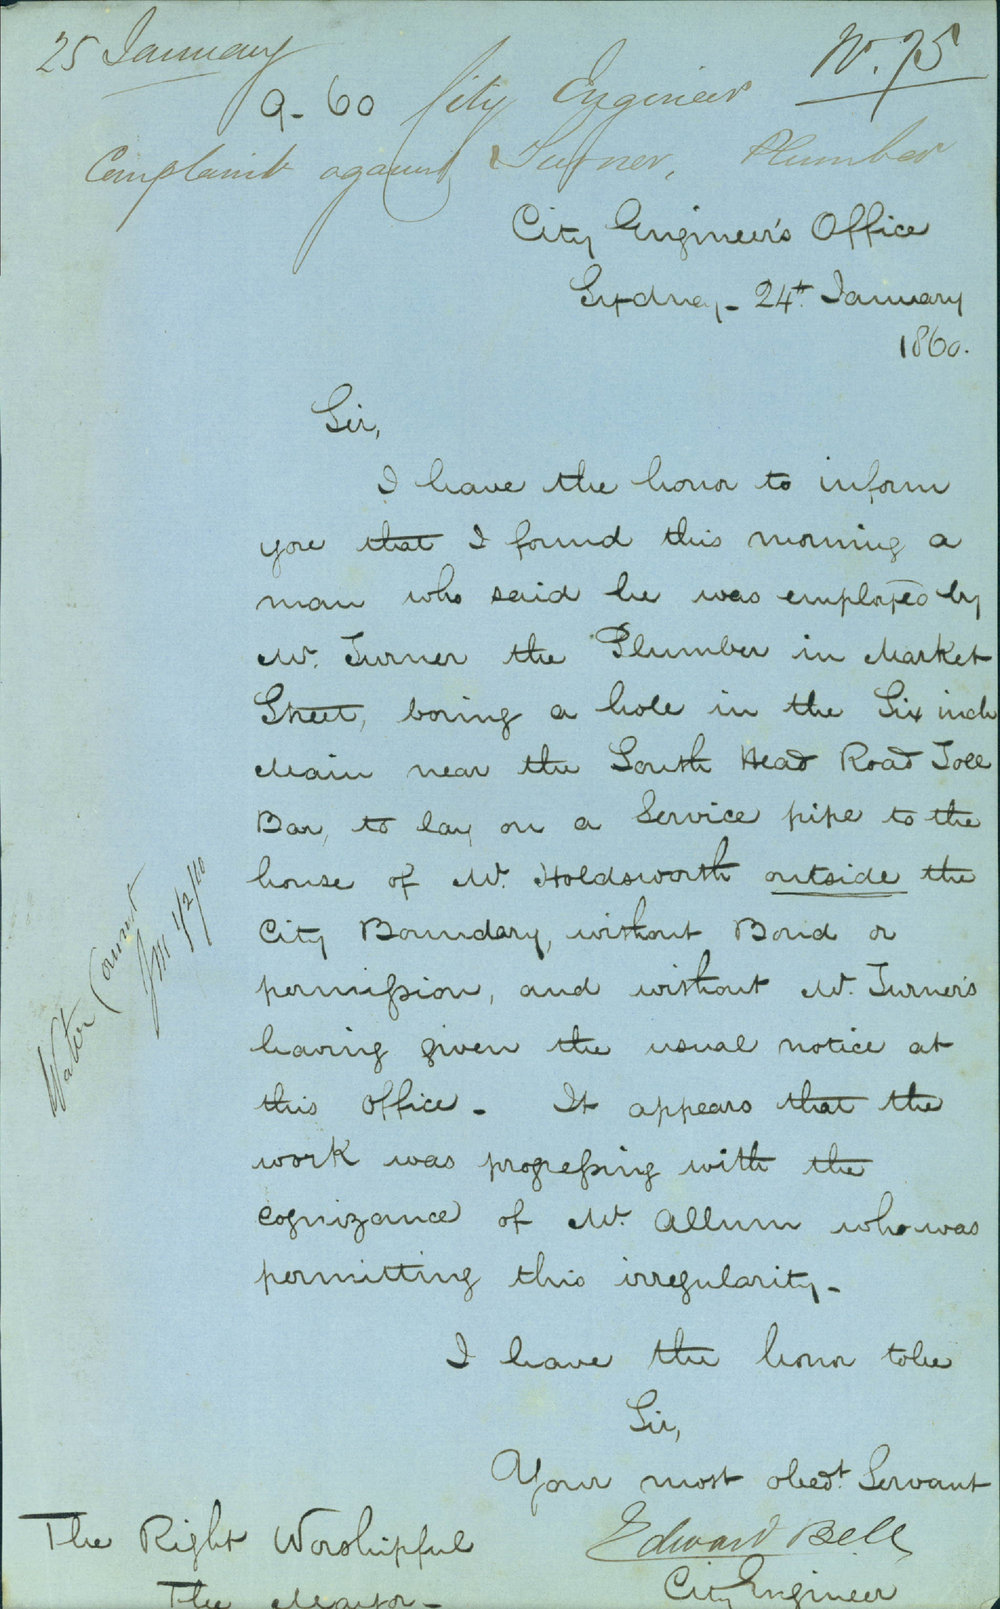 25 January
No. 75
9-60 City Engineer
Complaint against Turner, Plumber
City Engineer's Office
Sydney - 24th January
1860.
Sir,
I have the honor to inform
you that I found this morning a
man who said he was employed by
Mr. Turner the Plumber in Market
Street, boring a hole in the Six inch
Main near the South Head Road Toll
Bar, to lay on a Service pipe to the
house of Mr. Holdsworth outside the
City Boundary, without Bond or
permission, and without Mr. Turner's
having given the usual notice at
this Office - It appears that the
work was progressing with the
cognizance of Mr. Allum who was
permitting this irregularity -
I have the honor to be
Sir,
Your most obedt. Servant
Edward Bell
City Engineer
The Right Worshipful
The Mayor -
Water Commt
1/2/60